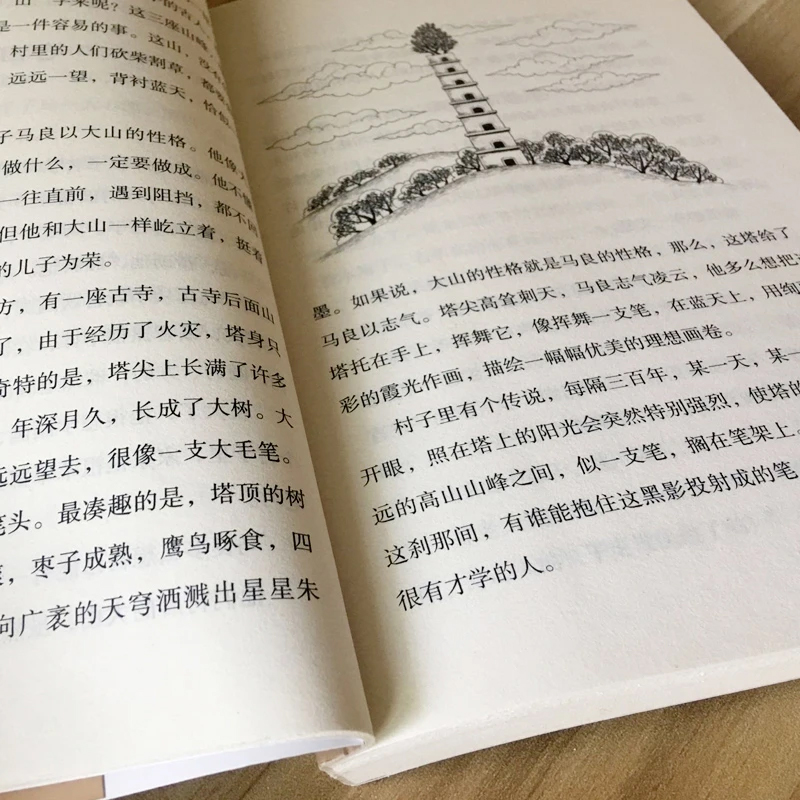 山"字来呢？这三座山峰
是一件容易的事。这山，没有
村里的人们砍柴割草，都
远远一望，背衬蓝天，恰似
子马良以大山的性格。他像
做什么，一定要做成。他不
一往直前，遇到阻挡，都不
但他和大山一样屹立着，挺着
的儿子为荣。
方，有一座古寺，古寺后面山
了，由于经历了火灾，塔身只
奇特的是，塔尖上长满了许多
年深月久，长成了大树。大
远远望去，很像一支大毛笔。
笔头。最凑趣的是，塔顶的树
，枣子成熟，鹰鸟啄食，四
向广袤的天穹洒溅出星星朱
墨。如果说，大山的性格就是马良的性格，那么，这塔给了
马良以志气。塔尖高耸刺天，马良志气凌云，他多么想把
塔托在手上，挥舞它，像挥舞一支笔，在蓝天上，用绚
彩的霞光作画，描绘一幅幅优美的理想画卷。
村子里有个传说，每隔三百年，某一天，某一
开眼，照在塔上的阳光会突然特别强烈，使塔的
远的高山山峰之间，似一支笔，搁在笔架上。
这刹那间，有谁能抱住这黑影投射成的笔，
很有才学的人。